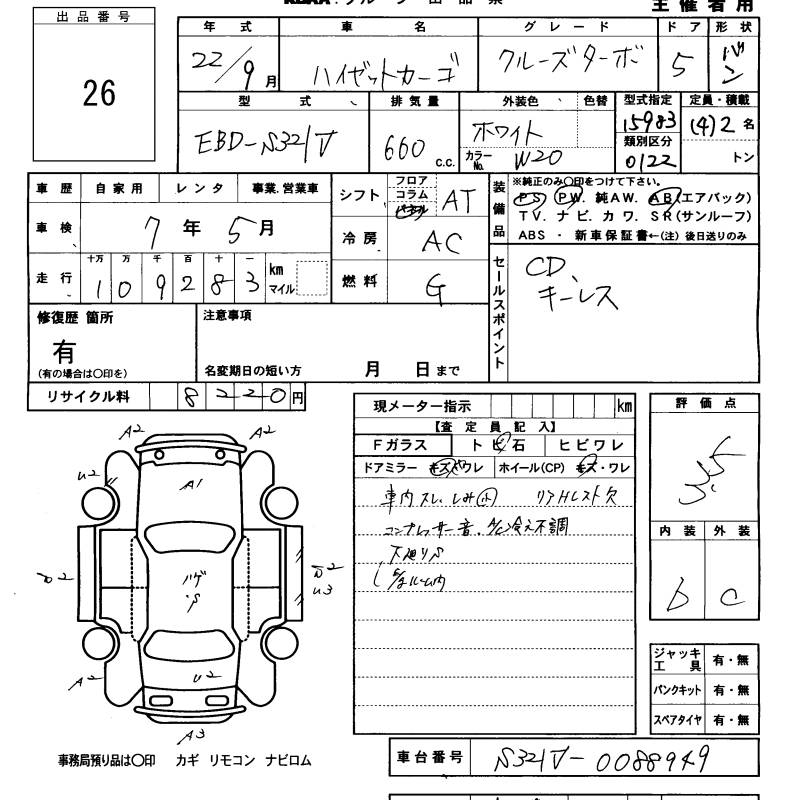 出品番号
26
主催者用
年式 車名 グレード ドア 形状
22/9月 ハイゼットカーゴ クルーズターボ 5 バン
型式 排気量 外装色 色替 型式指定 定員・積載
EBD-S321V 660 c.c. ホワイト 15983 (4)2名
カラーNo. W20 類別区分 0122 トン
車歴 自家用 レンタ 事業.営業車
車検 7年5月
走行 十万 万 千 百 十 一 km マイル
109283
シフト フロア コラム AT
冷房 AC
燃料 G
装備品
※純正のみ○印をつけて下さい。
PS. PW. 純AW. AB(エアバック)
TV. ナビ. カワ. SR(サンルーフ)
ABS ・ 新車保証書←(注) 後日送りのみ
セールスポイント
CD.
キーレス
修復歴 箇所
有
(有の場合は○印を)
注意事項
名変期日の短い方 月 日まで
リサイクル料 8220円
現メーター指示 km
【査定員記入】
Fガラス トビ石 ヒビワレ
ドアミラー キズ・ワレ ホイール(CP) キズ・ワレ
車内スレ、しみ 小 リアHレスト欠
コンプレッサー音、A/C冷え不調
下廻りS
ルーム内
評価点
3.5
内装 外装
b c
ジャッキ工具 有・無
パンクキット 有・無
スペアタイヤ 有・無
A2 A2
U2 A1
U2
ハゲ
.S
U3
A2 U2
A3
事務局預り品は○印 カギ リモコン ナビロム
車台番号 S321V-0088949